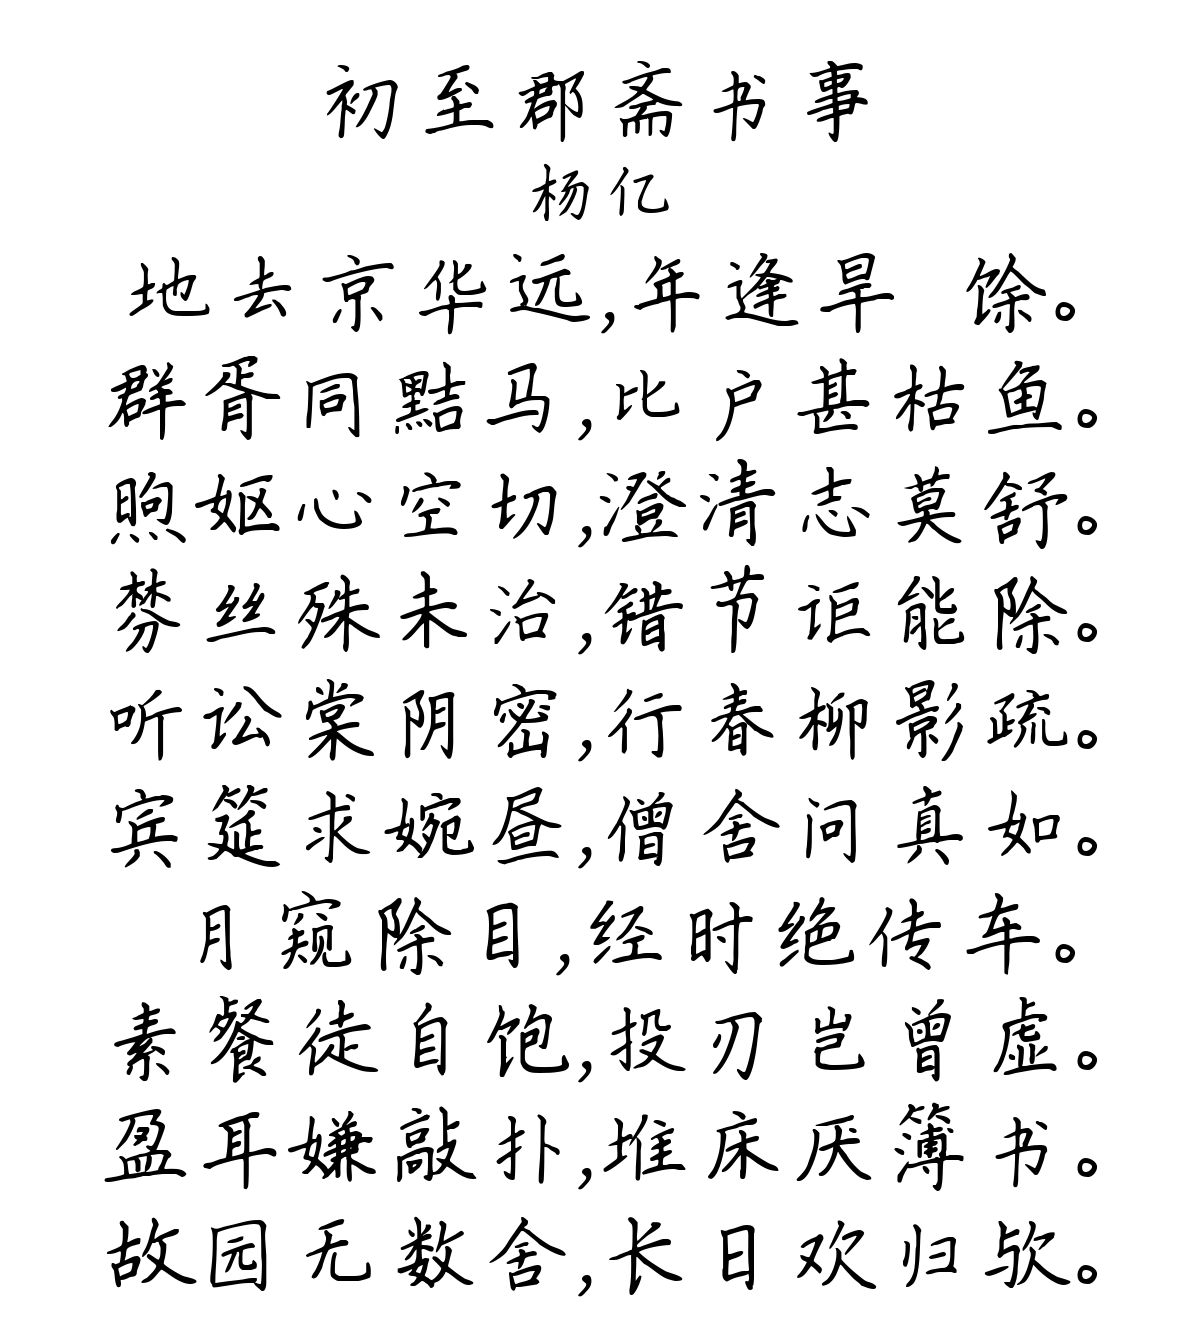 初至郡斋书事
杨亿
地去京华远,年逢旱 馀。
群胥同黠马,比户甚枯鱼。
煦妪心空切,澄清志莫舒。
棼丝殊未治,错节讵能除。
听讼棠阴密,行春柳影疏。
宾筵求婉昼,僧舍问真如。
月窥除目,经时绝传车。
素餐徒自饱,投刃岂曾虚。
盈耳嫌敲扑,堆床厌簿书。
故园无数舍,长日欢归欤。